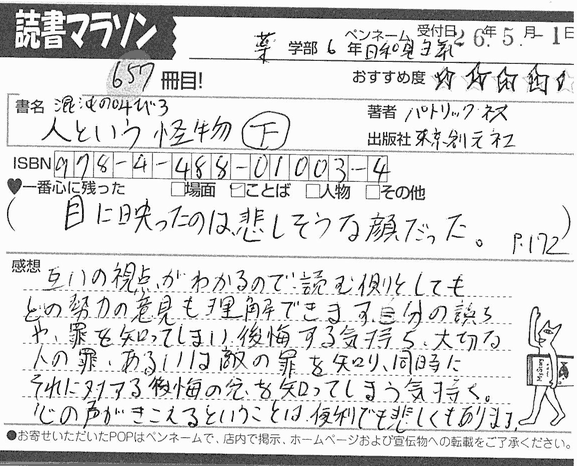 読書マラソン
薬 学部 6 年 ペンネーム 日和見主義 受付日 26年5月-1日
657 冊目! おすすめ度 ☆☆☆☆☆
書名 混沌の叫び3
人という怪物 下
著者 パトリック・ネス
出版社 東京創元社
ISBN 978-4-488-01003-4
♥一番心に残った □場面 ☑ことば □人物 □その他
(目に映ったのは、悲しそうな顔だった。 P.172)
感想
互いの視点がわかるので、読む側としても
どの勢力の意見も理解できます。自分の誤ち
や、罪を知ってしまい後悔する気持ち、大切な
人の罪、あるいは敵の罪を知り、同時に
それに対する後悔の念を知ってしまう気持ち。
心の声がきこえるということは、便利でも悲しくもあります。
●お寄せいただいたPOPはペンネームで、店内で掲示、ホームページおよび宣伝物への転載をご了承ください。